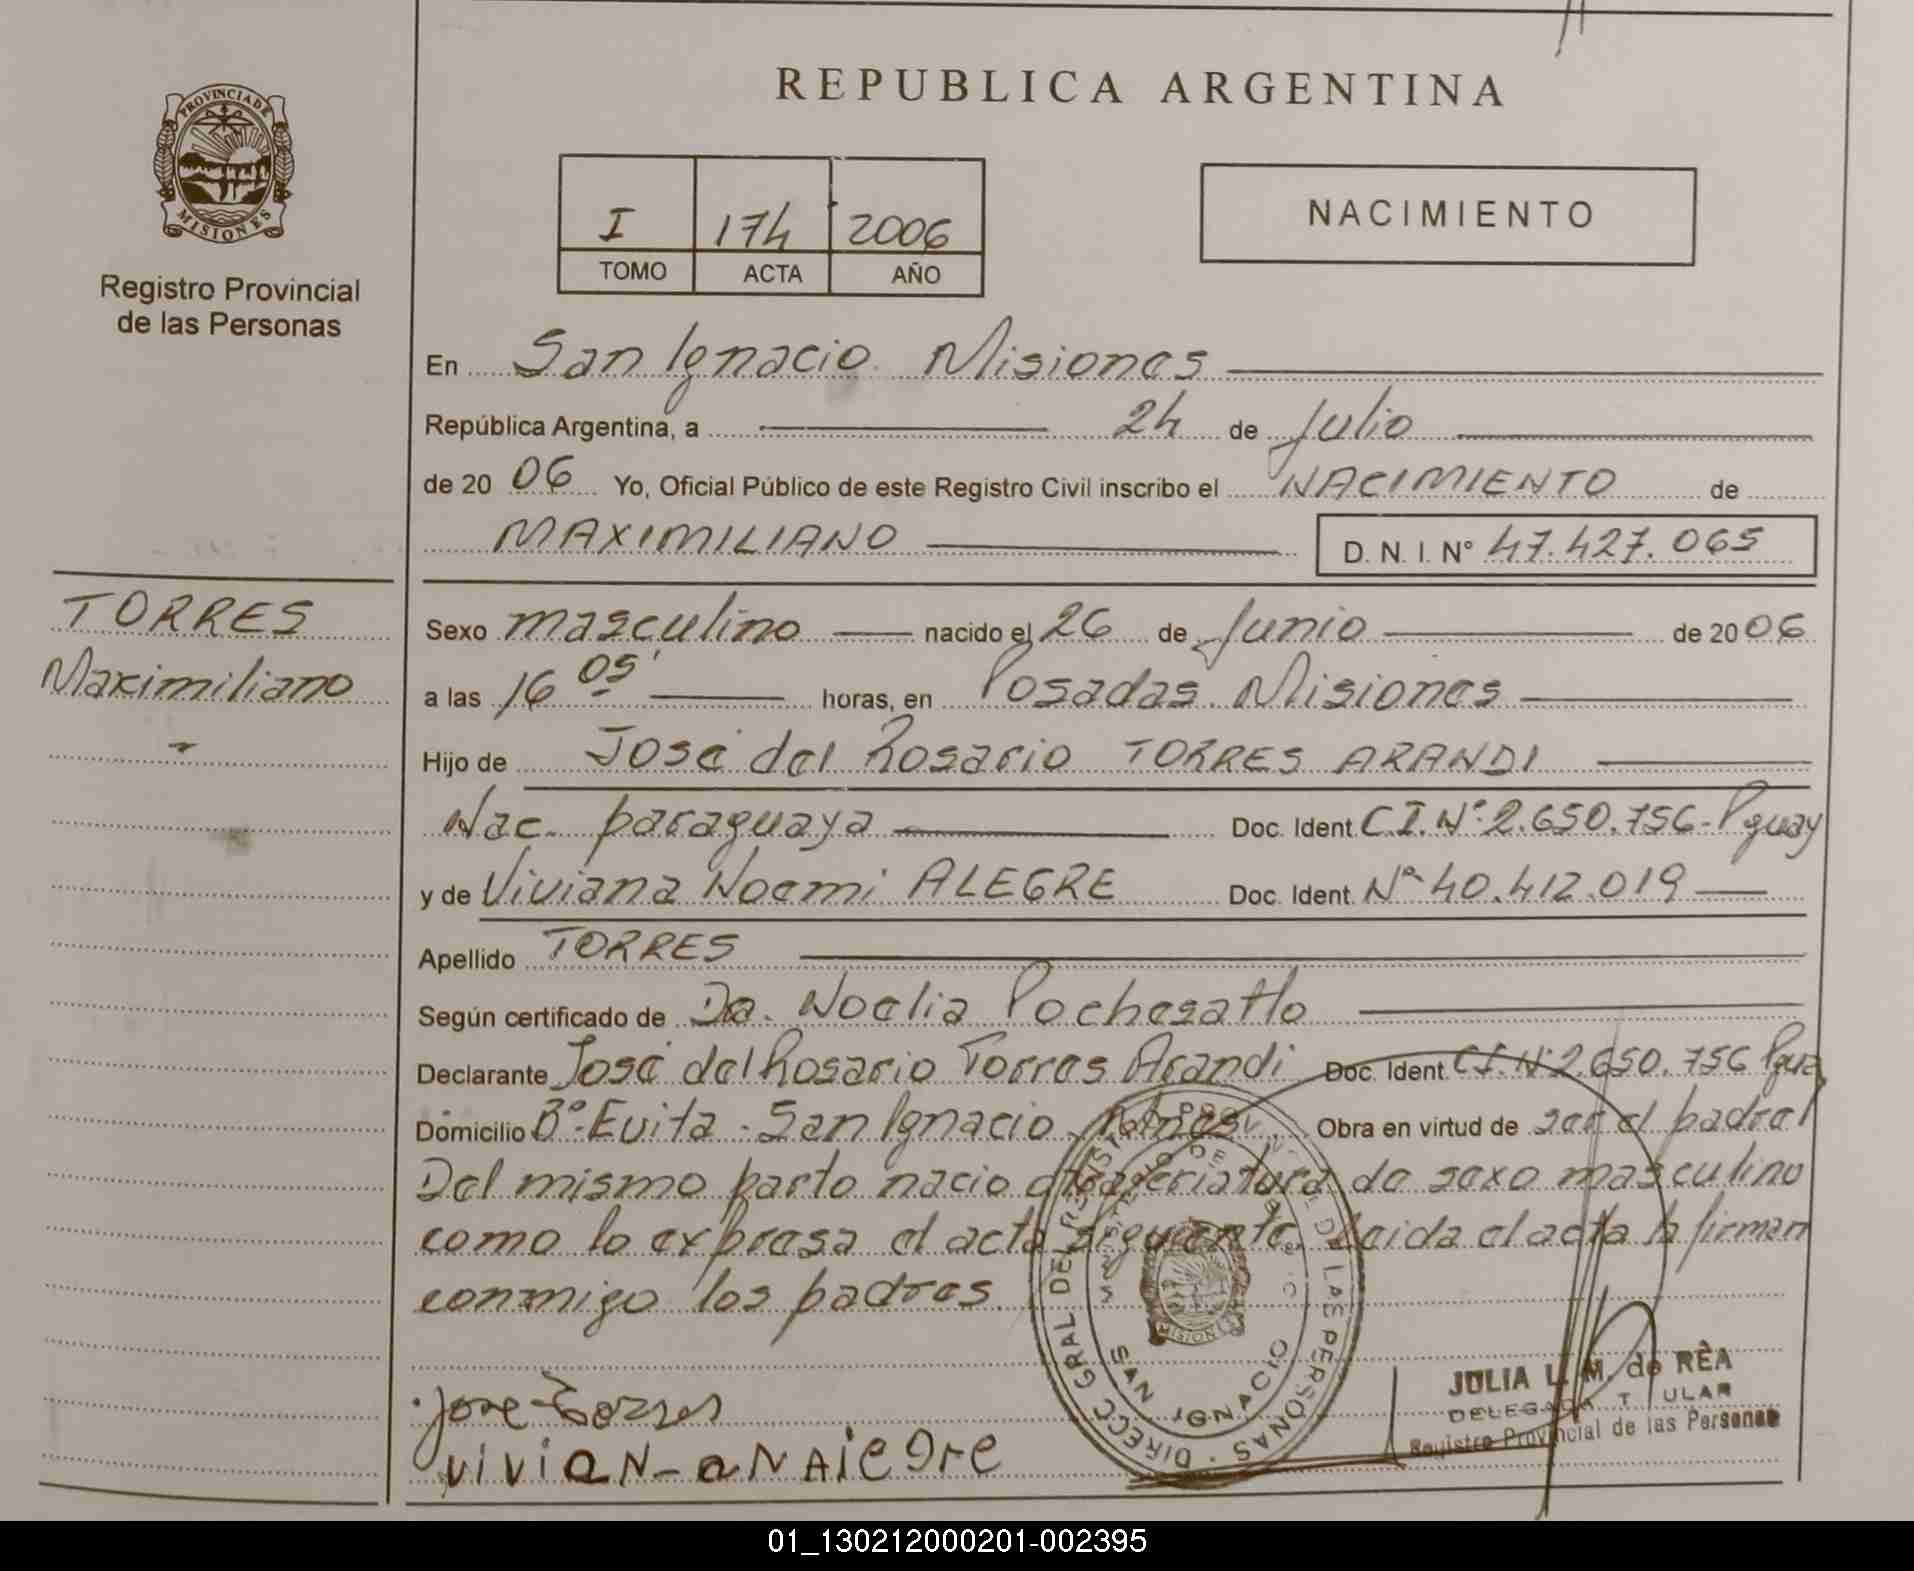 REPUBLICA ARGENTINA
PROVINCIA DE
MISIONES
Registro Provincial
de las Personas
I 174 2006
TOMO ACTA AÑO
NACIMIENTO
En San Ignacio. Misiones
República Argentina, a 24 de Julio
de 20 06 Yo, Oficial Público de este Registro Civil inscribo el NACIMIENTO de
MAXIMILIANO D. N. I. Nº 47.427.065
TORRES
Maximiliano
Sexo masculino nacido el 26 de Junio de 20 06
a las 16 05' horas, en Posadas. Misiones
Hijo de José del Rosario TORRES ARANDI
Nac. paraguaya Doc. Ident. C.I. Nº 2.650.756- Pguay
y de Viviana Noemi ALEGRE Doc. Ident. Nº 40.412.019
Apellido TORRES
Según certificado de Da. Noelia
Declarante José del Rosario Torres Arandi Doc. Ident. C.I. Nº 2.650.756
Domicilio Bº. Evita - San Ignacio Obra en virtud de ser el padre
Del mismo parto nacio otra criatura de sexo masculino
como lo expresa el acta siguiente. Leida el acta la firman
conmigo los padres.
DIRECC GRAL DEL REGISTRO DE LAS PERSONAS
SAN IGNACIO
MISIONES
Jose Torres
VIVIAN-aNAlegre
JULIA L. M. de RÊA
DELEGADA TITULAR
Registro Provincial de las Personas
01_130212000201-002395